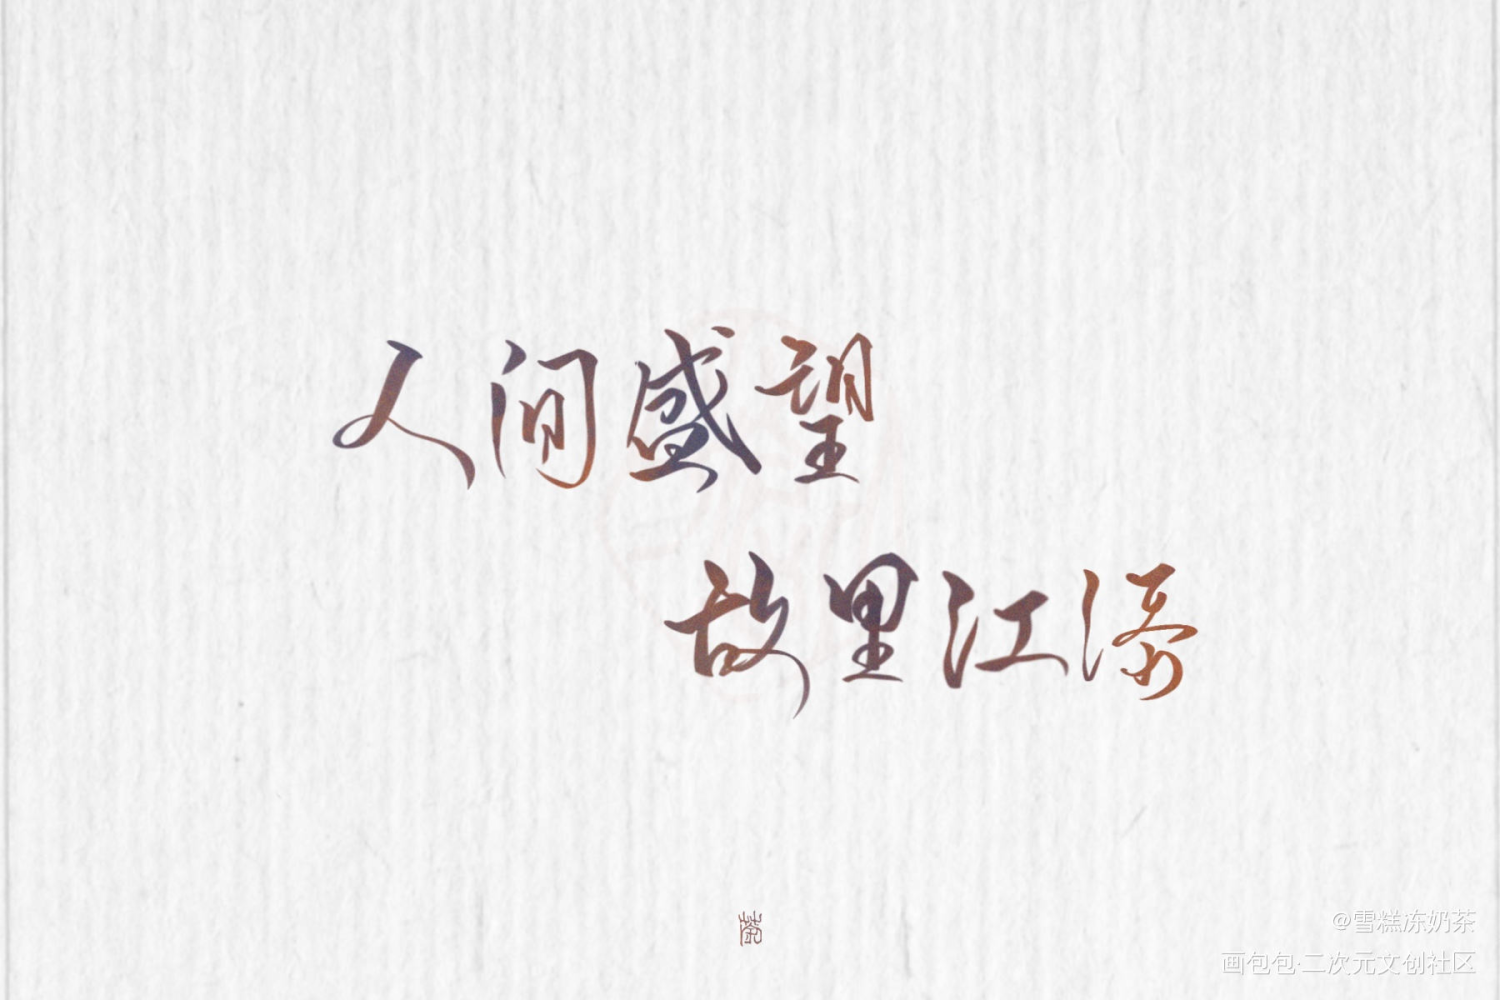 人间盛望
故里江添
@雪糕冻奶茶
画包包·二次元文创社区